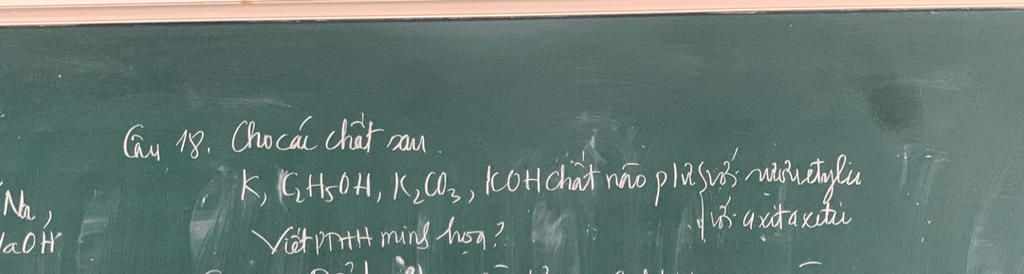 Câu 18. Cho các chất sau.
K, C₂H₅OH, K₂CO₃, KOH chất nào pứ với rượu etylic
với axit axetic
Na,
Viết PTHH minh họa?
NaOH